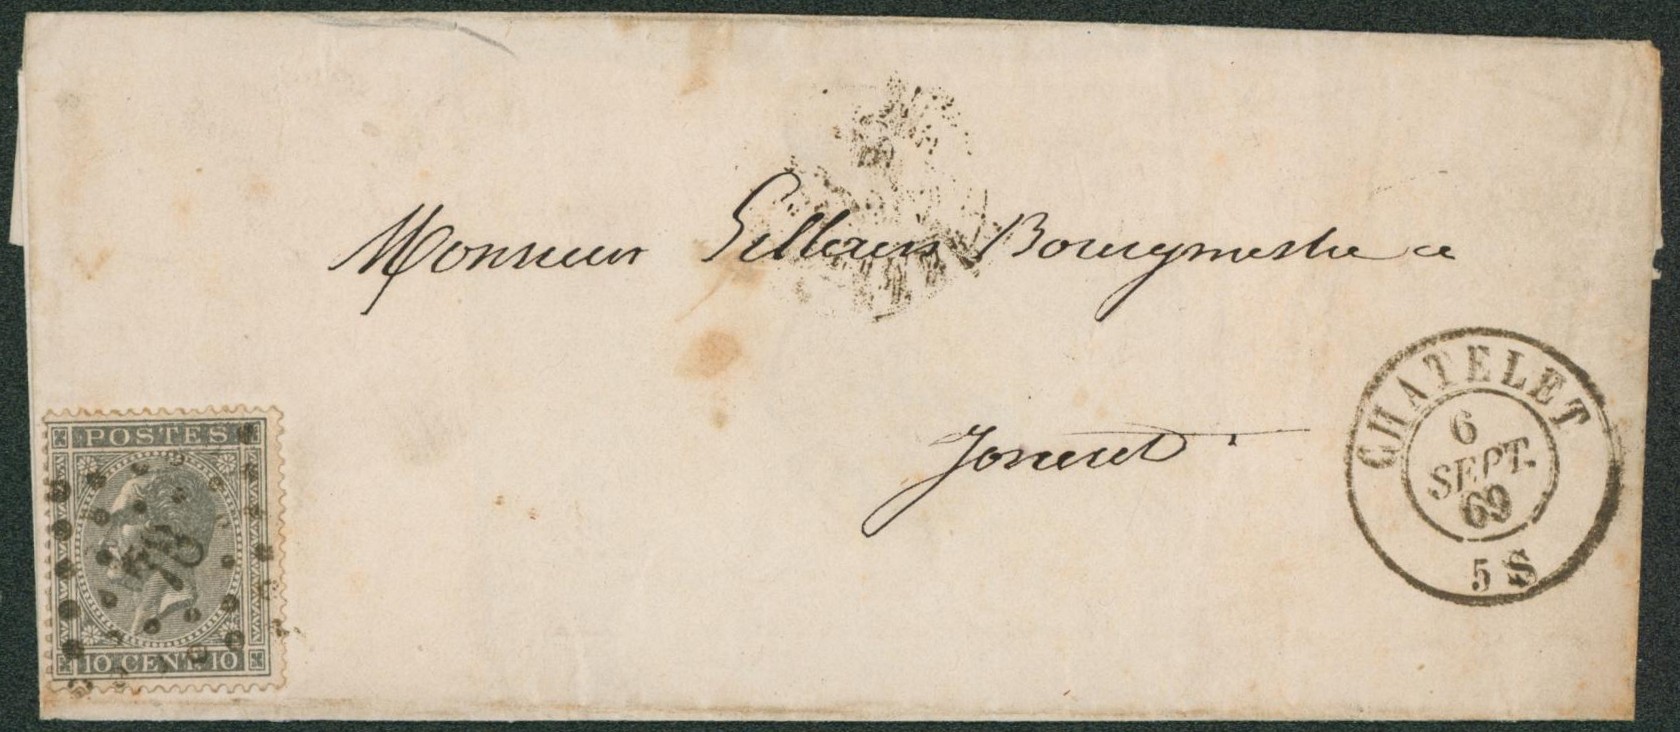 Monsieur Gillain Bourgmestre a
CHATELET
6
SEPT.
69
5 S
POSTES
78
10 CENT. 10